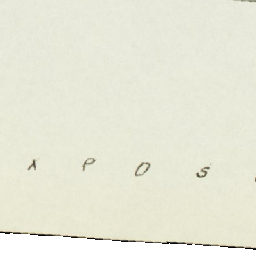 X P O S